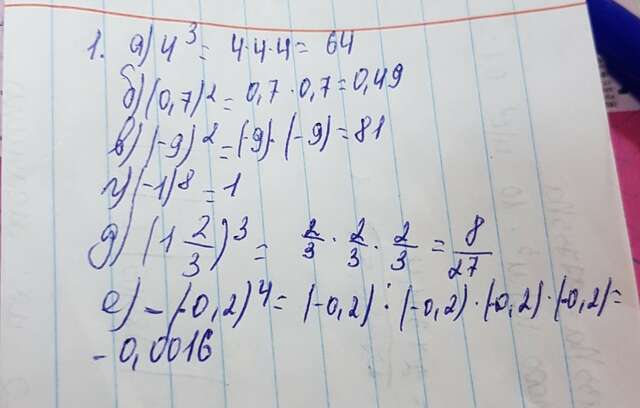 1. а) 4³ = 4·4·4 = 64
б) (0,7)² = 0,7 · 0,7 = 0,49
в) (-9)² = (-9)·(-9) = 81
г) (-1)⁸ = 1
д) (1 2/3)³ = 2/3 · 2/3 · 2/3 = 8/27
е) -(-0,2)⁴ = (-0,2)·(-0,2)·(-0,2)·(-0,2) =
-0,0016